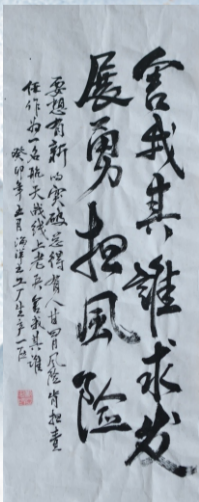 舍我其誰求发
展勇担風险
要想有新的突破总得有人甘冒风险肯担责
任作为一名航天战线上老兵舍我其谁
癸卯年五月海洋之工厂生产一区